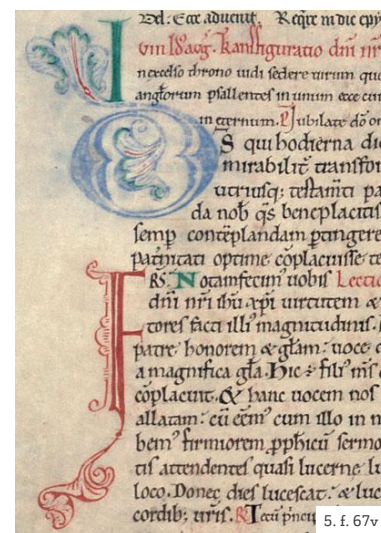 Vel: Ecce aduenit. Require in die epy
VIII Id' aug. Transfiguratio dni nri
In excelso throno uidi sedere uirum que
anglorum psallentes in unum ecce cui
in eternum. P Iubilate dō om
DS qui hodierna die
mirabilit transfor
utriusq; testam̄ti pa
da nob qs beneplacitis
semp contēplandam ptingere
patnitati optime cōplacuisse te
FRS. Notam fecim' uobis Lectio
dn̄i nr̄i ihū xp̄i uirtutem &
tores facti illi' magnitudinis.
patre honorem & glam: uoce d
a magnifica gla. Hic ē fili' m̄s
cōplacuit. & hanc uocem nos
allatam: cū eēm' cum illo in m
bem' firmiorem, pphicū sermo
tis attendentes quasi lucerne lu
loco. Donec dies lucescat: & luc
cordib; uris. R
5. f. 67v